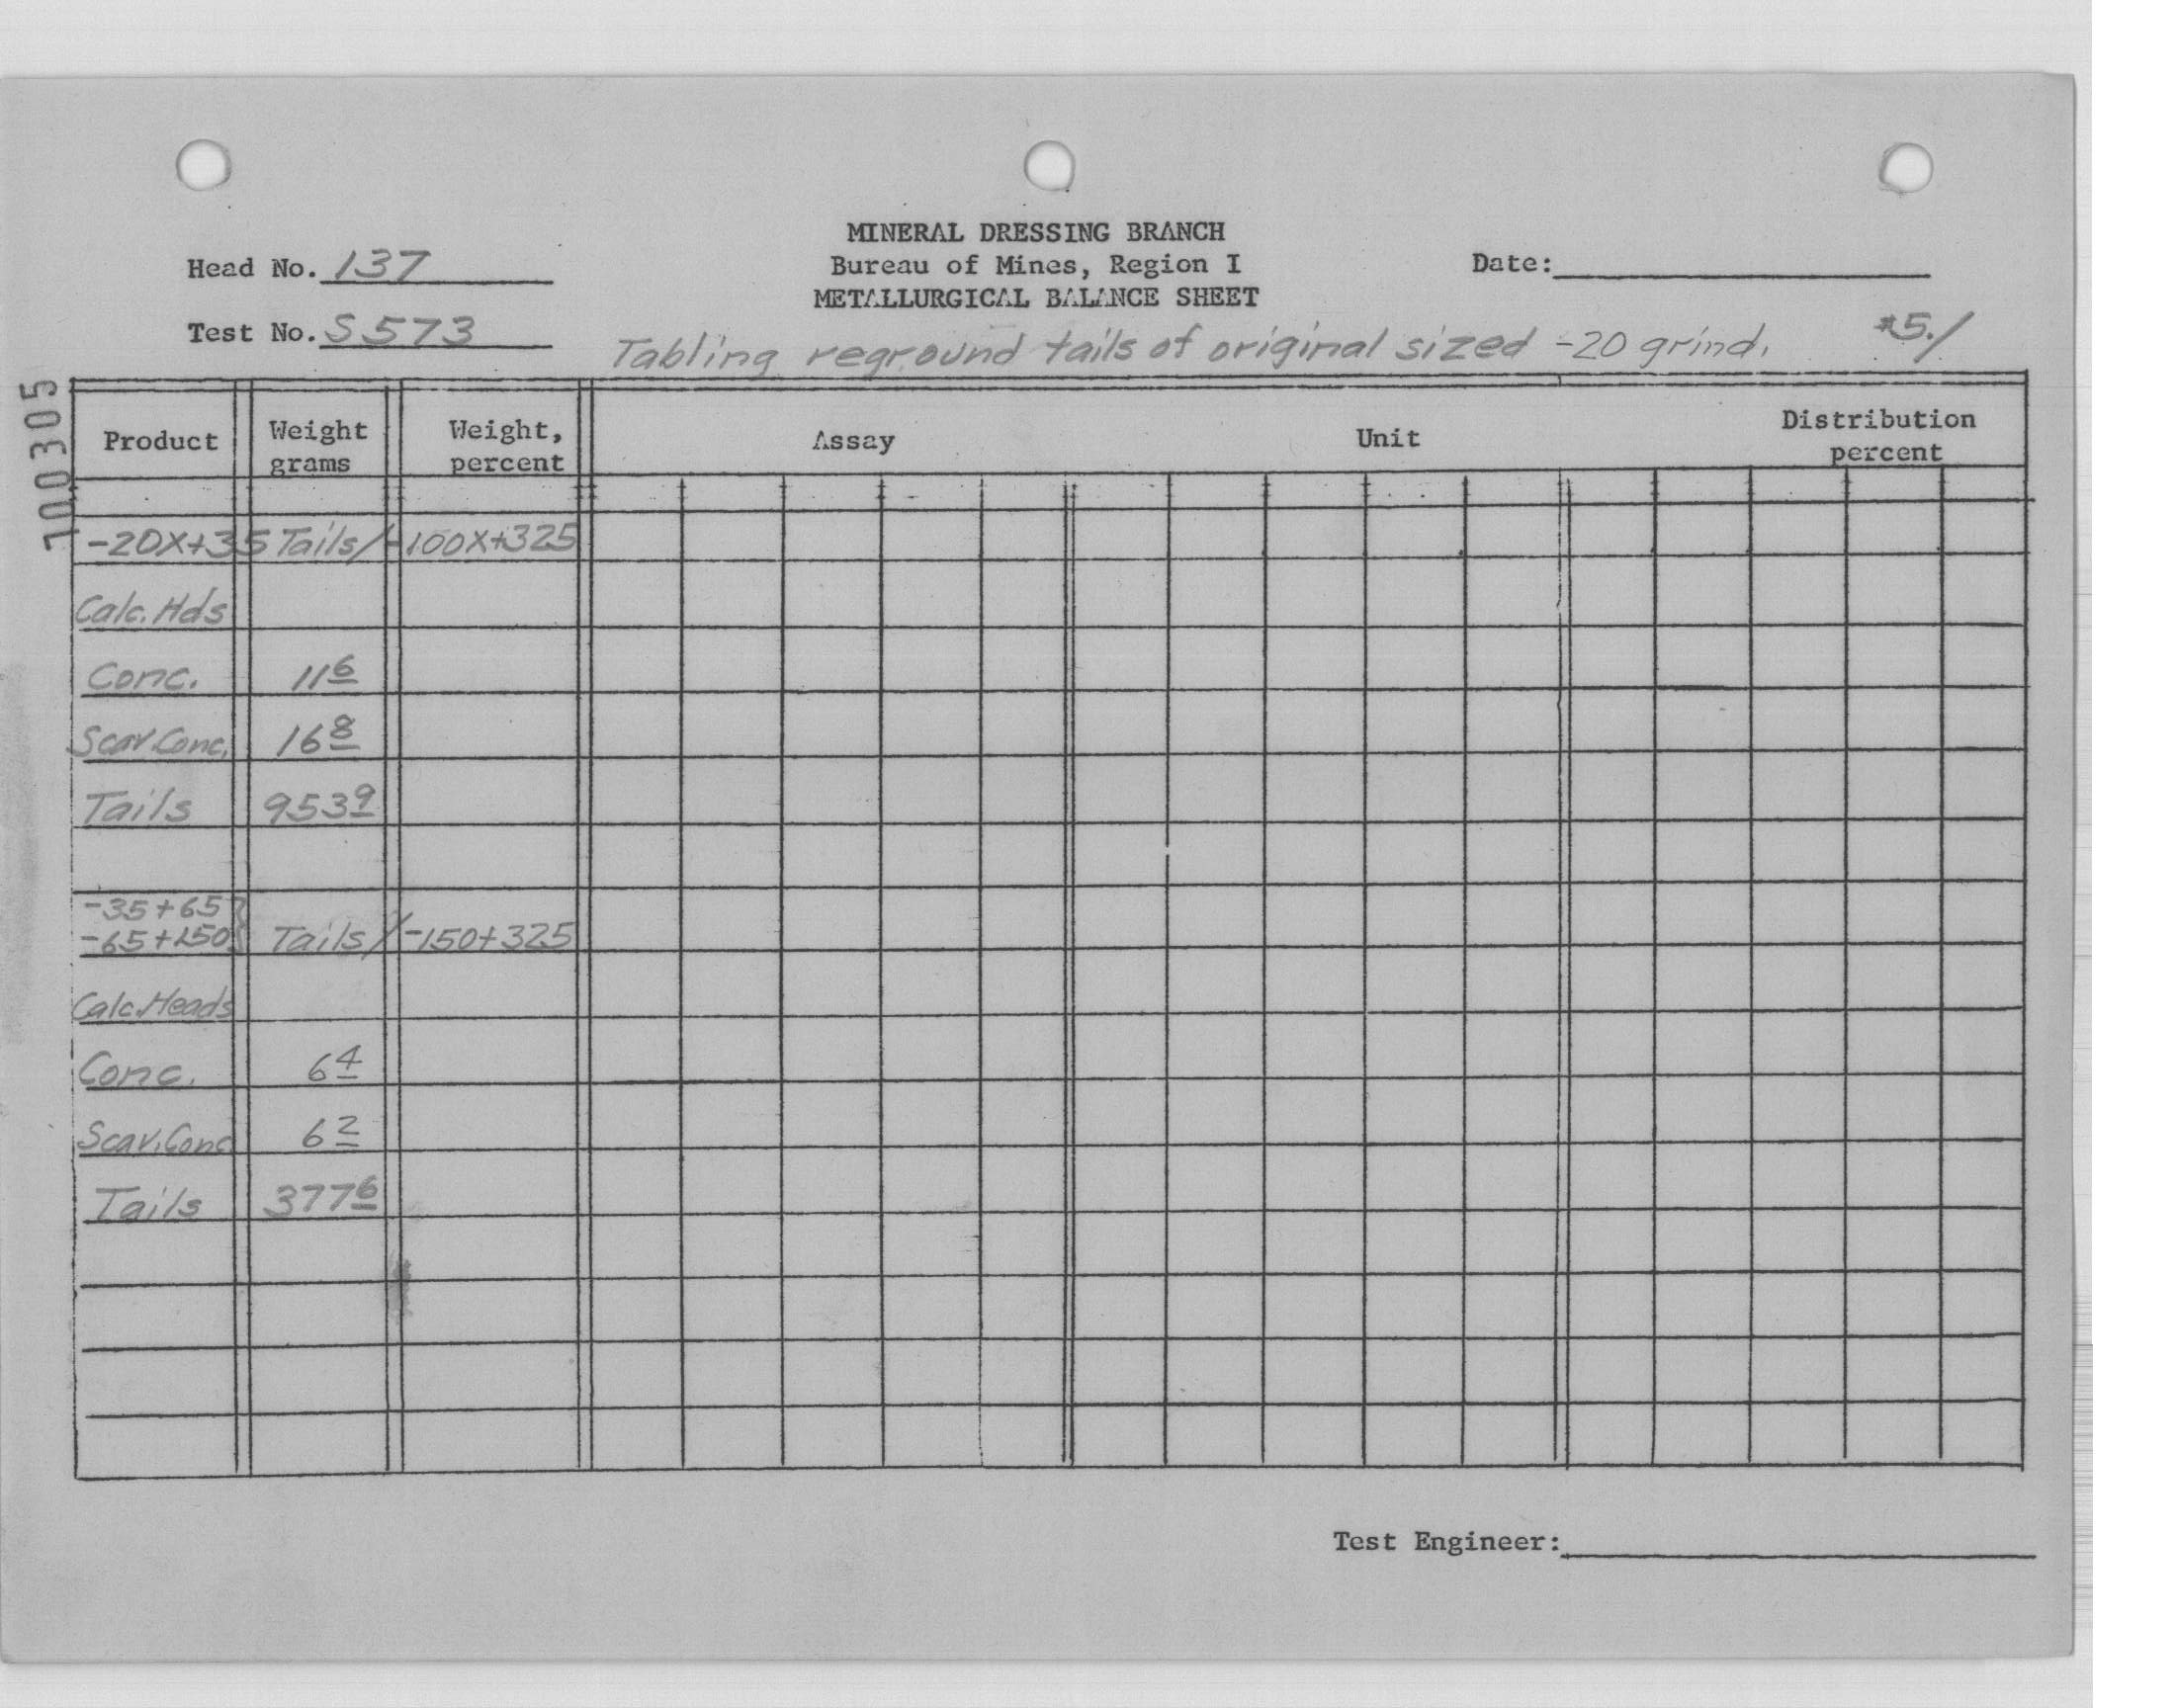 MINERAL DRESSING BRANCH
Head No. 137 Bureau of Mines, Region I Date:
METALLURGICAL BALANCE SHEET
Test No. S573
Tabling reground tails of original sized -20 grind. #5./
100305
Product Weight grams Weight, percent Assay Unit Distribution percent
-20X+35 Tails/-100X+325
Calc. Hds
Conc. 11 6
Scav. Conc. 16 8
Tails 953 9
-35+65
-65+150 } Tails/-150+325
Calc. Heads
Conc. 6 4
Scav. Conc. 6 2
Tails 377 6
Test Engineer: